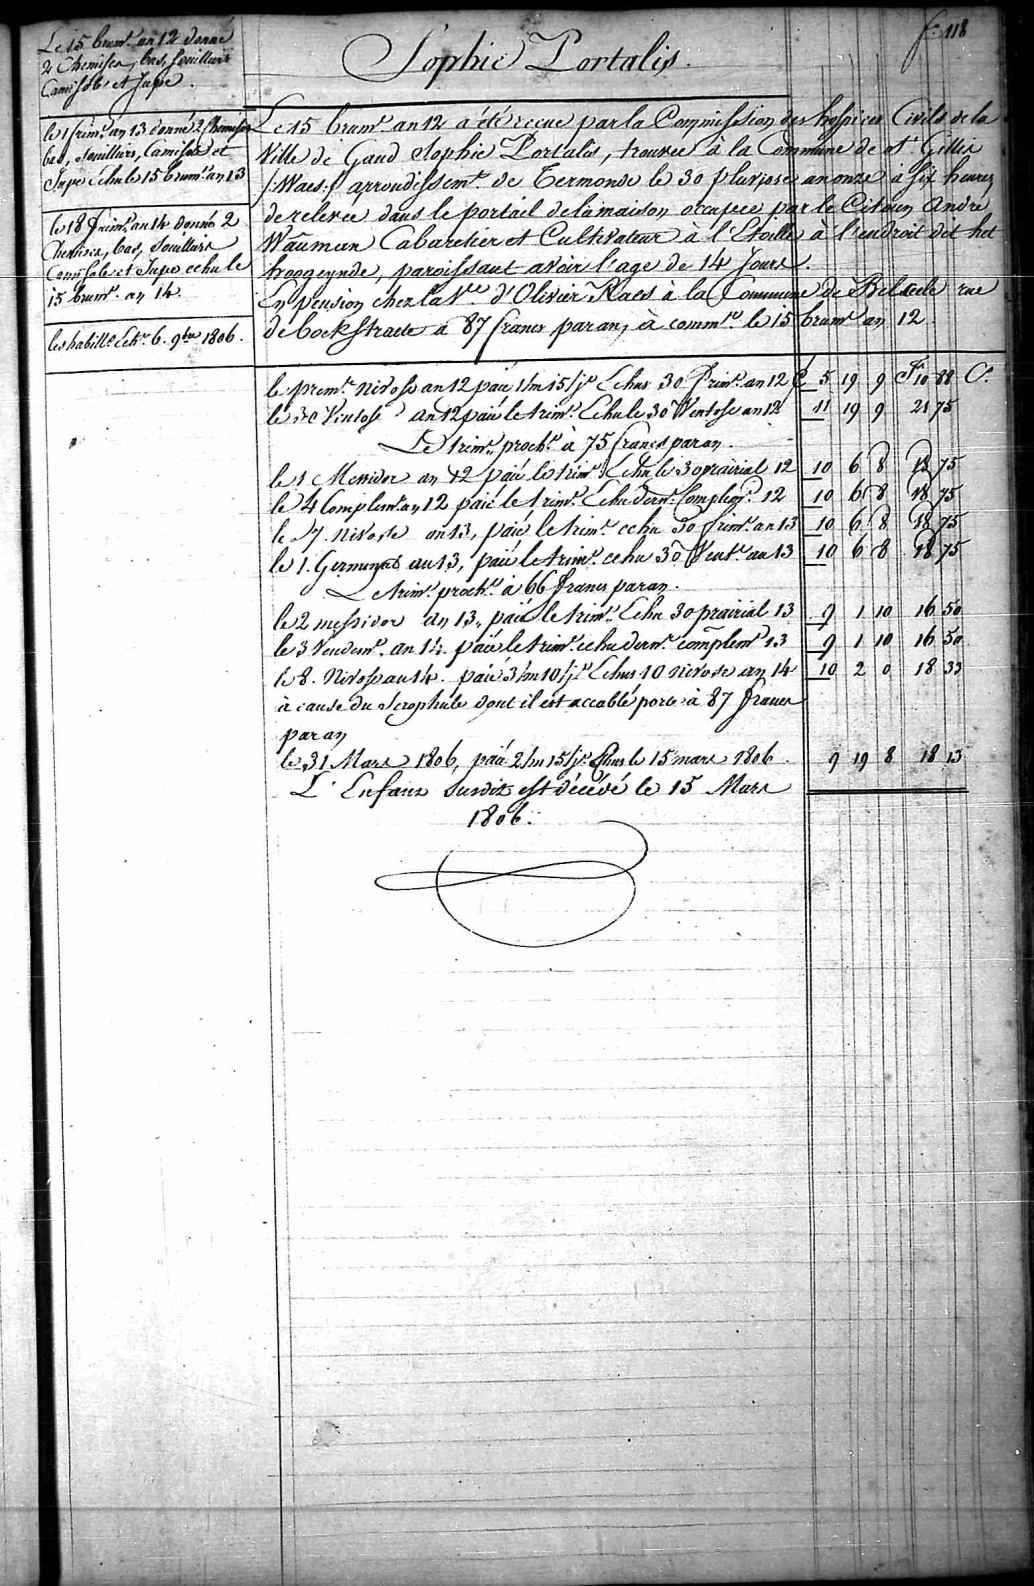 fo. 118
Sophie Portalis.
Le 15 brumre an 12 donné
2 Chemises, bas, souilliers
Camisole et Jupe.
le 1 frimre an 13 donné 2 chemises
bas, souilliers, Camisole et
Jupe échu le 15 brumre an 13
le 18 frimre an 14 donné 2
Chemises, bas, souilliers
Camisole et Jupe echu le
15 brumre an 14
les habillts 6. 9bre 1806.
Le 15 brumre an 12 a été recue par la Commission des hospices Civils de la
Ville de Gand Sophie Portalis, trouvée à la Commune de St Gillis
/:Waes:/ arrondissemt de Termonde le 30 pluviose an onze à six heures
de relevée dans le portail de la maison occupée par le Citoien Andre
Wauman Cabaretier et Cultivateur à l'Etoille à l'endroit dit het
hoogeynde, paroissant avoir l'age de 14 Jours.
En pension chez la Ve d'Olivier Raes à la Commune de Belcele rue
de bockstraete à 87 francs par an, à commcer le 15 brumre an 12.
le premr nivose an 12 païé 1/m 15/jrs Echus 30 frimre an 12 £ 5 19 9 Fr 10 88 Cs
le 30 Ventose an 12 païé le trimre Echu le 30 Ventose an 12 11 19 9 21 75
Le trimre prochn à 75 francs par an.
le 1 Messidor an 12 païé le trimre Echu le 30 prairial 12 10 6 8 18 75
le 4 Complemre an 12 païé le trimre Echu dernr Complemre 12 10 6 8 18 75
le 7. nivose an 13, païé le trimre echu 30 frimre an 13 10 6 8 18 75
le 1. Germinal an 13, païé le trimre echu 30 Vente an 13 10 6 8 18 75
Le trimre prochn à 66 francs par an.
le 2 messidor an 13, païé le trimre Echu 30 prairial 13 9 1 10 16 50
le 3 Vendemre an 14. païé le trimre echu dernr complemre 13 9 1 10 16 50
le 8. Nivose an 14. païé 3/m 10/jrs Echus 10 nivose an 14 10 2 0 18 33
à cause du scrophule dont il est accablé porté à 87 francs
par an
le 31 Mars 1806, païé 2/m 15/jrs Echus le 15 mars 1806. 9 19 8 18 13
L'Enfant susdit est décédé le 15 Mars
1806.